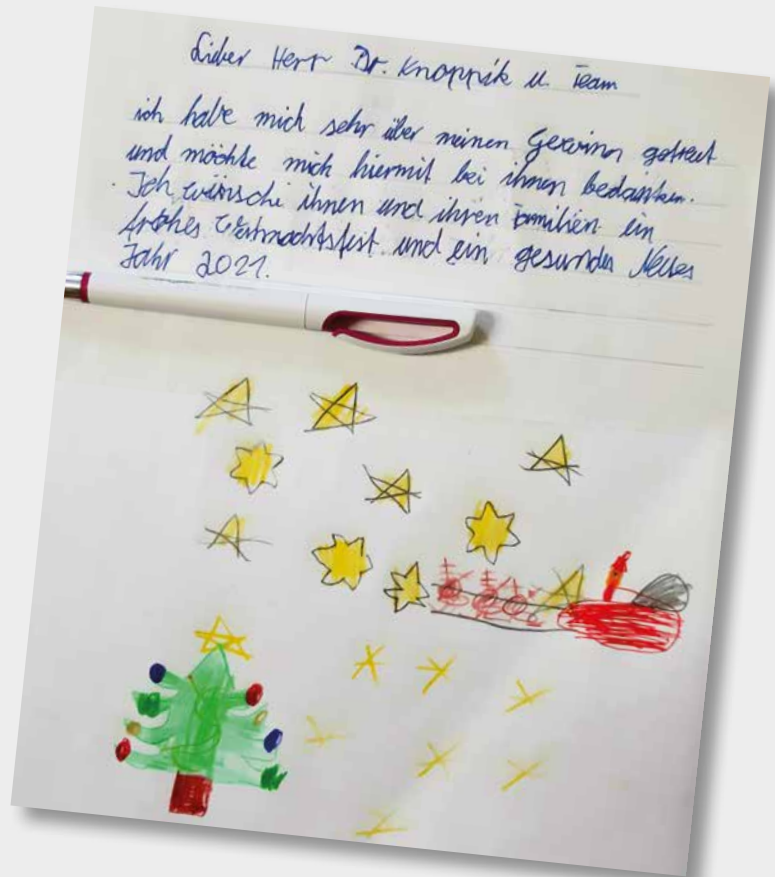 Lieber Herr Dr. Knoppik u. Team
ich habe mich sehr über meinen Gewinn gefreut
und möchte mich hiermit bei ihnen bedanken.
Ich wünsche ihnen und ihren Familien ein
frohes Weihnachtsfest und ein gesundes Neues
Jahr 2021.